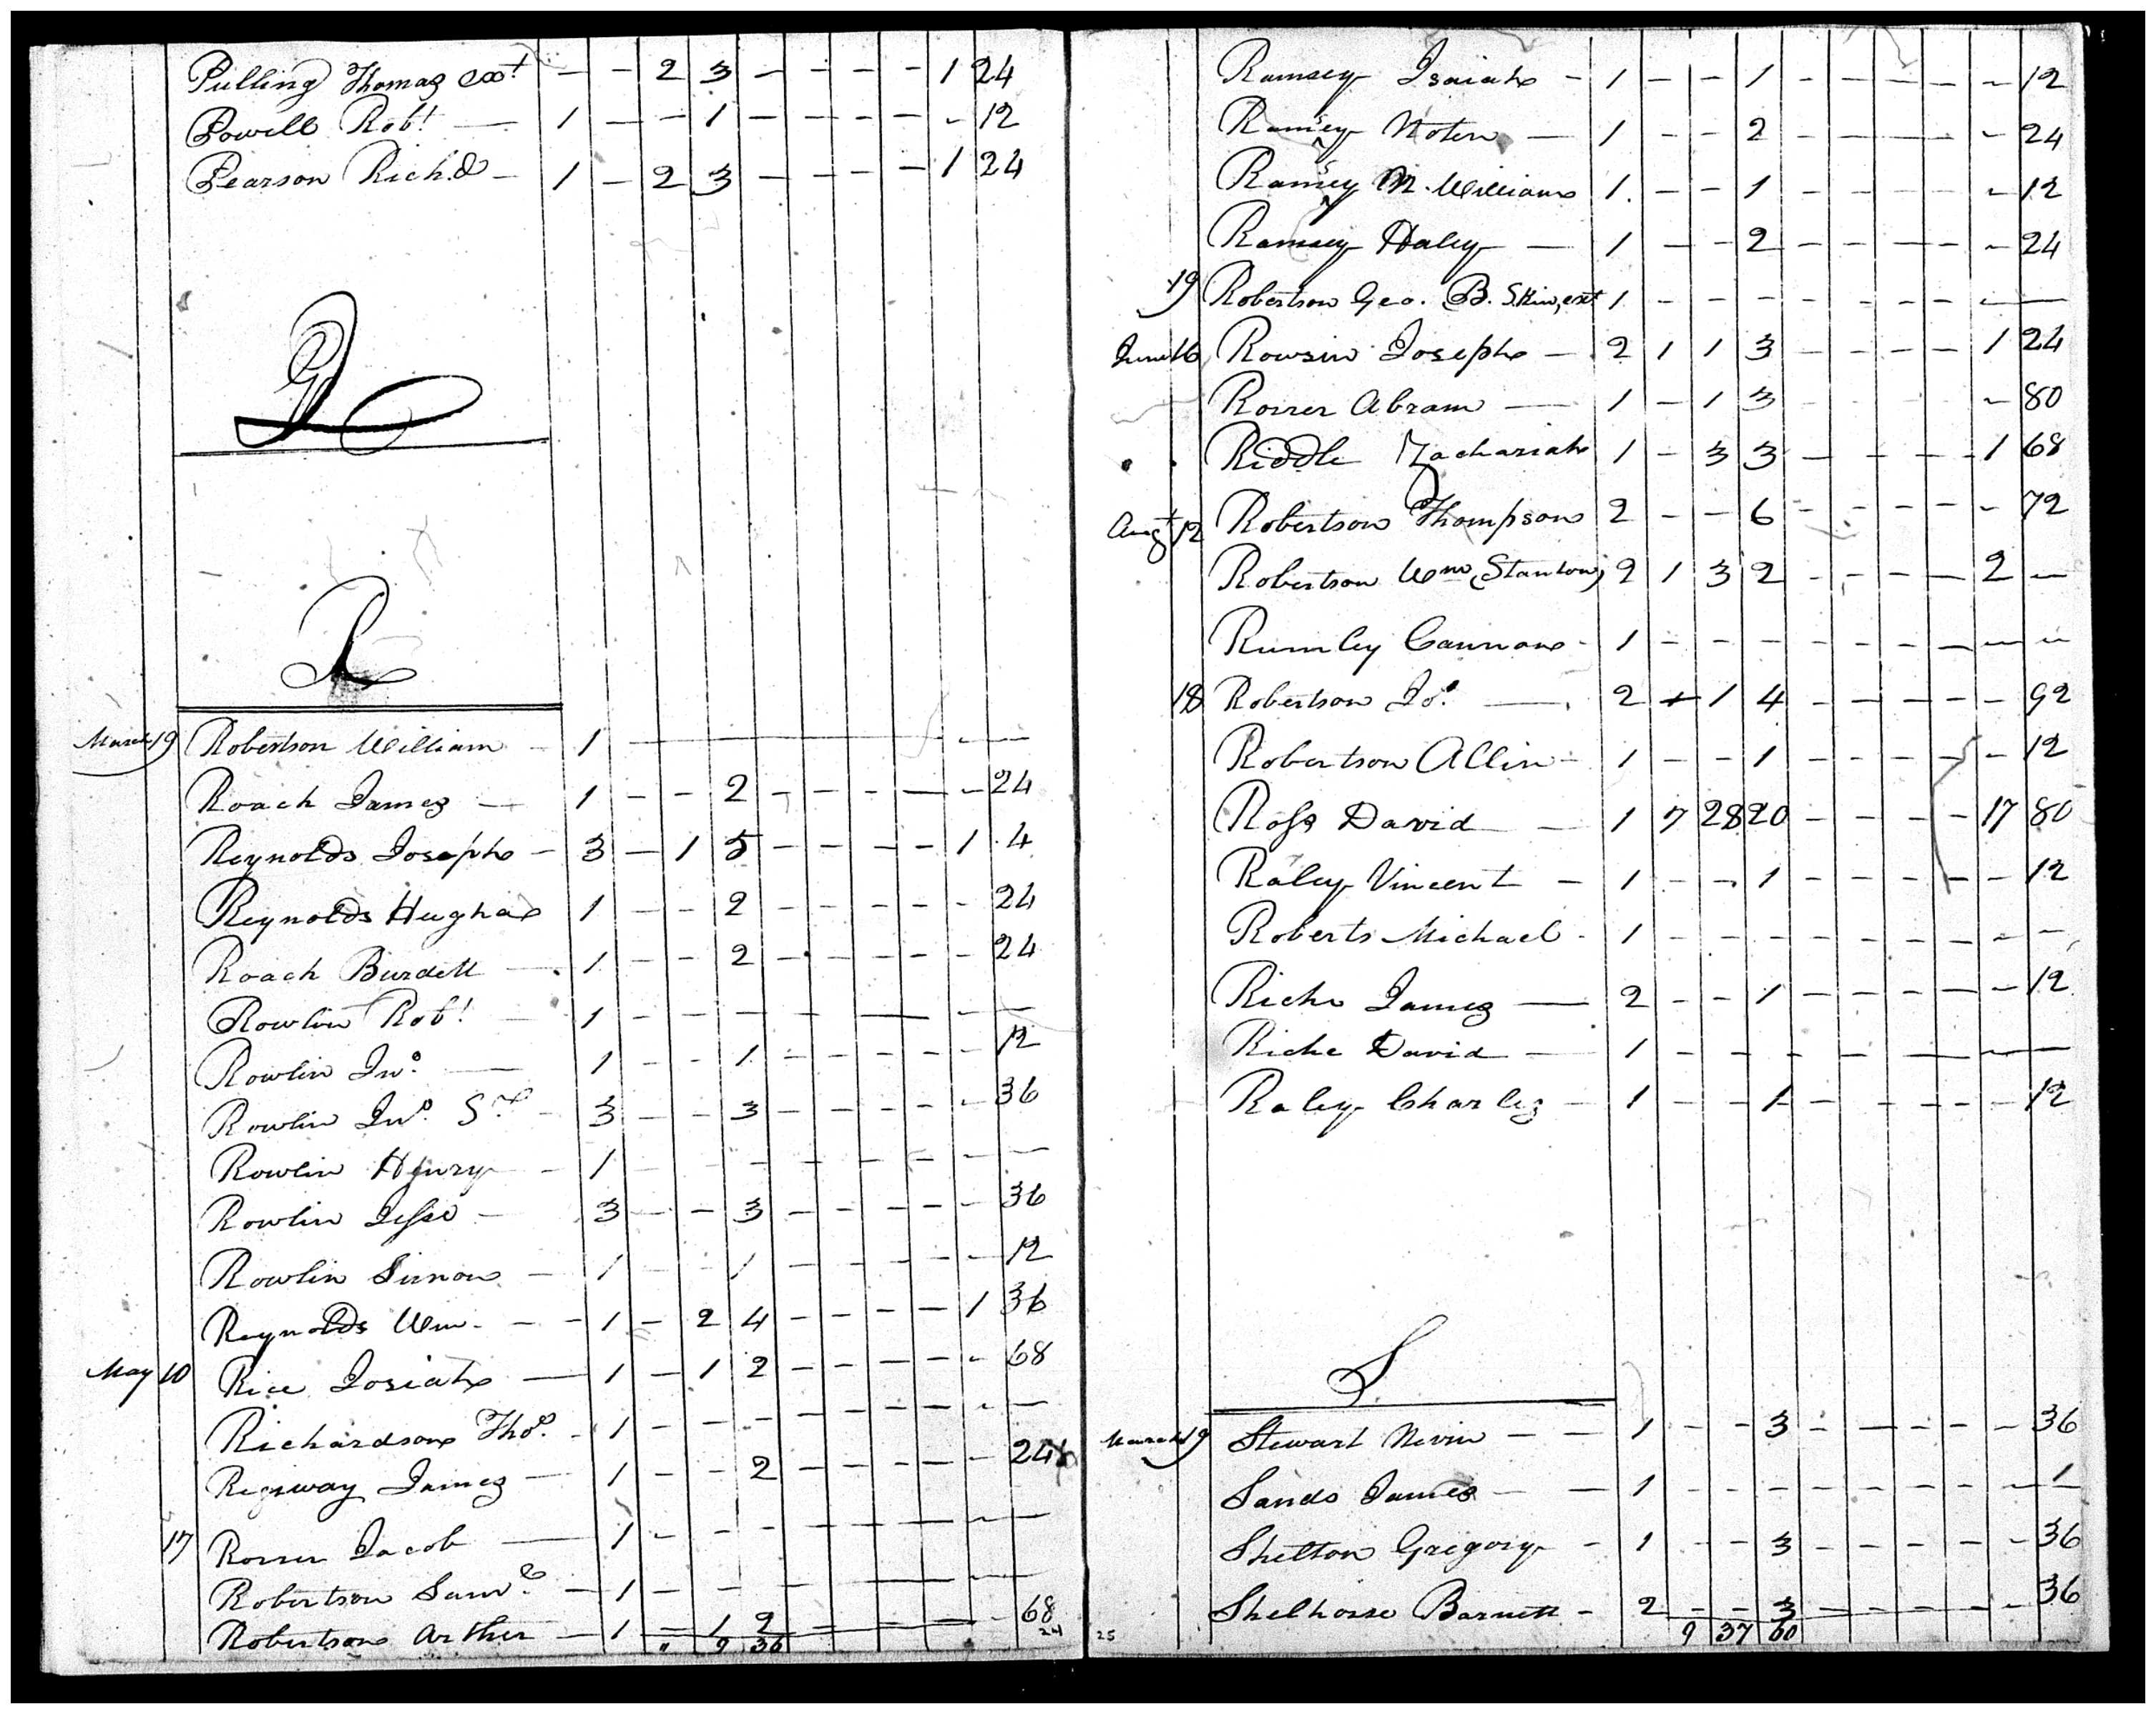 Pulling Thomas ext - - 2 3 - - - - 1 24
Powell Robt. — 1 - - 1 - - - - - 12
Pearson Richd - 1 - 2 3 - - - - 1 24
Q
R
March 19 Robertson William - 1 - - - - - - - - —
Roach James - 1 - - 2 - - - - - 24
Reynolds Joseph - 3 - 1 5 - - - - 1 4
Reynolds Hugh 1 - - 2 - - - - - 24
Roach Burdett - 1 - - 2 - - - - - 24
Rowlin Robt. - 1 - - - - - - - - —
Rowlin Jno. — 1 - - 1 - - - - - 12
Rowlin Jno. Sr - 3 - - 3 - - - - - 36
Rowlin Henry - 1 - - - - - - - - —
Rowlin Jesse - 3 - - 3 - - - - - 36
Rowlin Simon - 1 - - 1 - - - - - 12
Reynolds Wm. - - 1 - 2 4 - - - - 1 36
May 10 Rice Josiah — 1 - 1 2 - - - - - 68
Richardson Thos. - 1 - - - - - - - - —
Regway James - 1 - - 2 - - - - - 24
17 Rorrer Jacob — 1 - - - - - - - - —
Robertson Saml. - 1 - - - - - - - - —
Robertson Arther - 1 - 1 2 - - - - - 68
" 9 36 24
Ramsey Isaiah - 1 - - 1 - - - - - 12
Ramsey Noten — 1 - - 2 - - - - - 24
Ramsey M. William 1. - - 1 - - - - - 12
Ramsey Haley — 1 - - 2 - - - - - 24
19 Robertson Geo. B. Skin, ext 1 - - - - - - - - —
June 16 Rowsin Joseph - 2 1 1 3 - - - - 1 24
Rorrer Abram — 1 - 1 3 - - - - - 80
Riddle Zachariah 1 - 3 3 - - - - 1 68
Augt 12 Robertson Thompson 2 - - 6 - - - - - 72
Robertson Wm (Stanton) 2 1 3 2 - - - - 2 —
Rumley Cannon - 1 - - - - - - - - —
18 Robertson Jo. — 2 + 1 4 - - - - - 92
Robertson Allin - 1 - - 1 - - - - - 12
Ross David — 1 7 28 20 - - - - 17 80
Raley Vincent - 1 - - 1 - - - - - 12
Roberts Michael - 1 - - - - - - - - -
Riche James — 2 - - 1 - - - - - 12
Riche David — 1 - - - - - - - - —
Raley Charles - 1 - - 1 - - - - - 12
S
March 19 Stewart Nevin - - 1 - - 3 - - - - - 36
Sands James - - 1 - - - - - - - - —
Shelton Gregory - 1 - - 3 - - - - - 36
Shelhorse Barnett - 2 - - 3 - - - - - 36
25 9 37 60